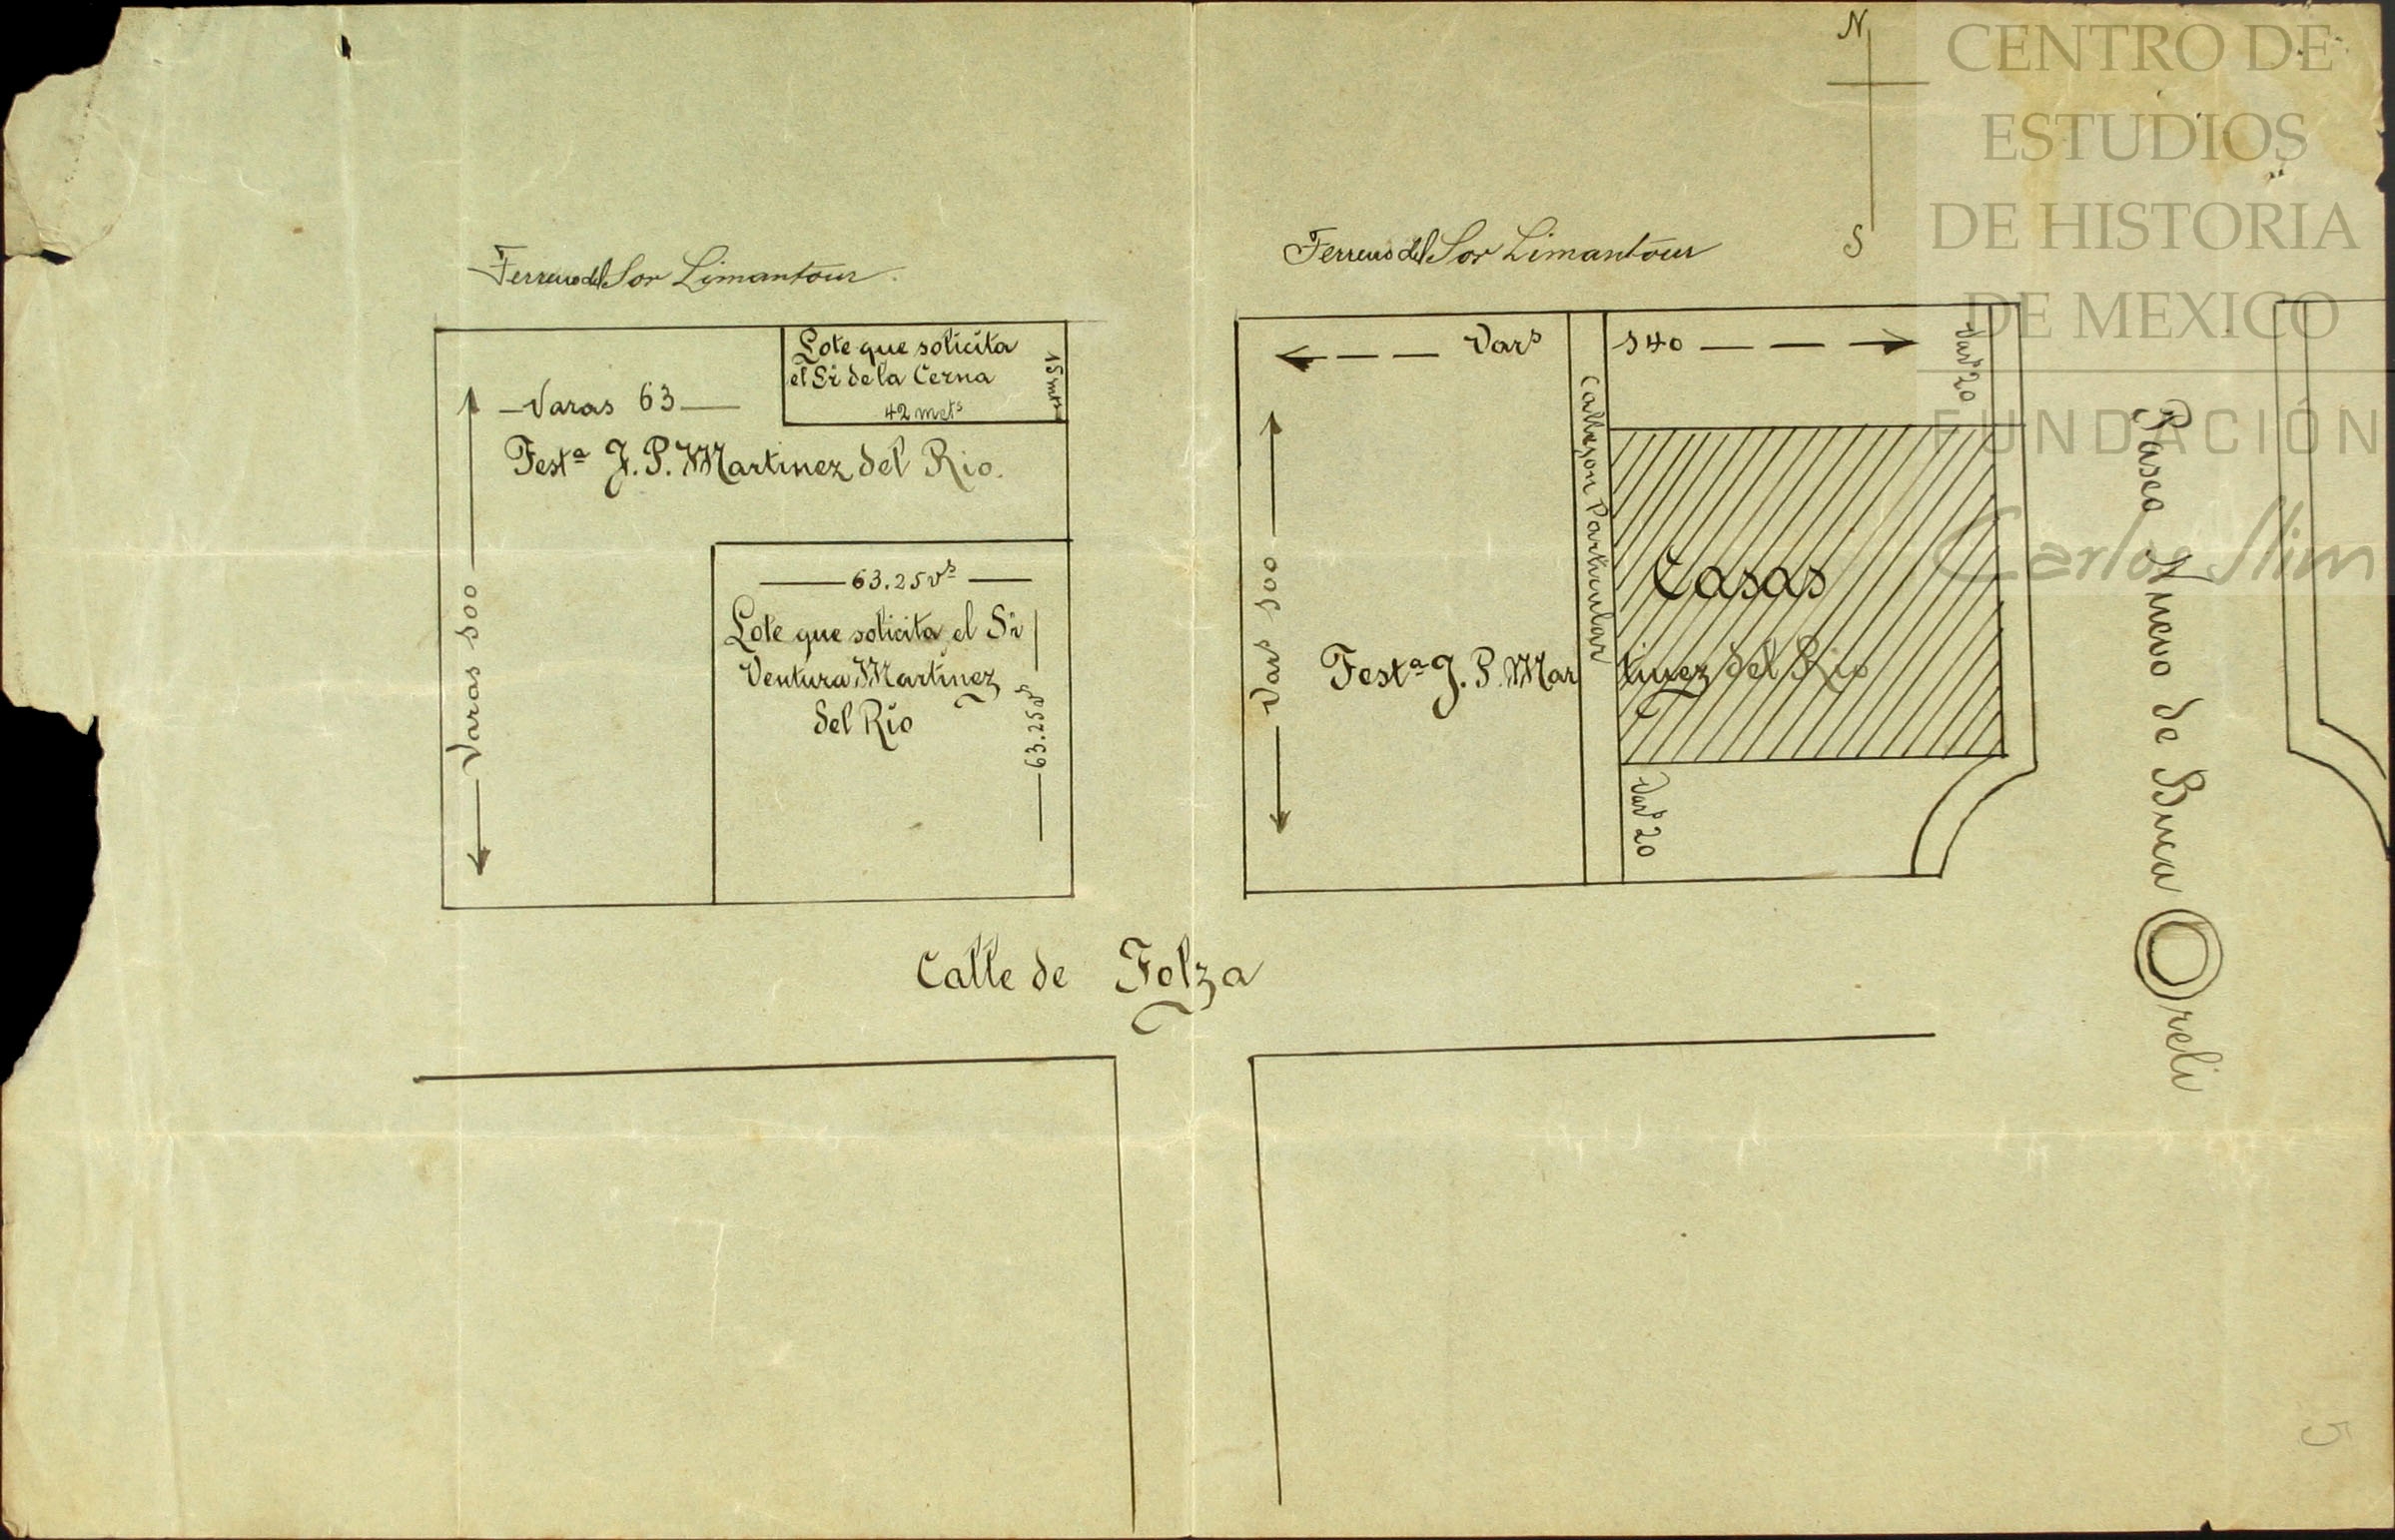 N
S
Terreno del Sor Limantour
Varas 63
Testª J. P. Martinez del Rio.
Varas 100
Lote que solicita
el Sr de la Cerna
42 mets
15 mts
63.25 vs
Lote que solicita el Sr
Ventura Martinez
del Rio
63.25 vs
Terreno del Sor Limantour
Vars 140
Vars 20
Callejon Particular
Vars 100
Casas
Testª J. P. Martinez del Rio
Vars 20
Paseo Nuevo de Buca Oreli
Calle de Tolza
5
CENTRO DE
ESTUDIOS
DE HISTORIA
DE MEXICO
FUNDACIÓN
Carlos Slim